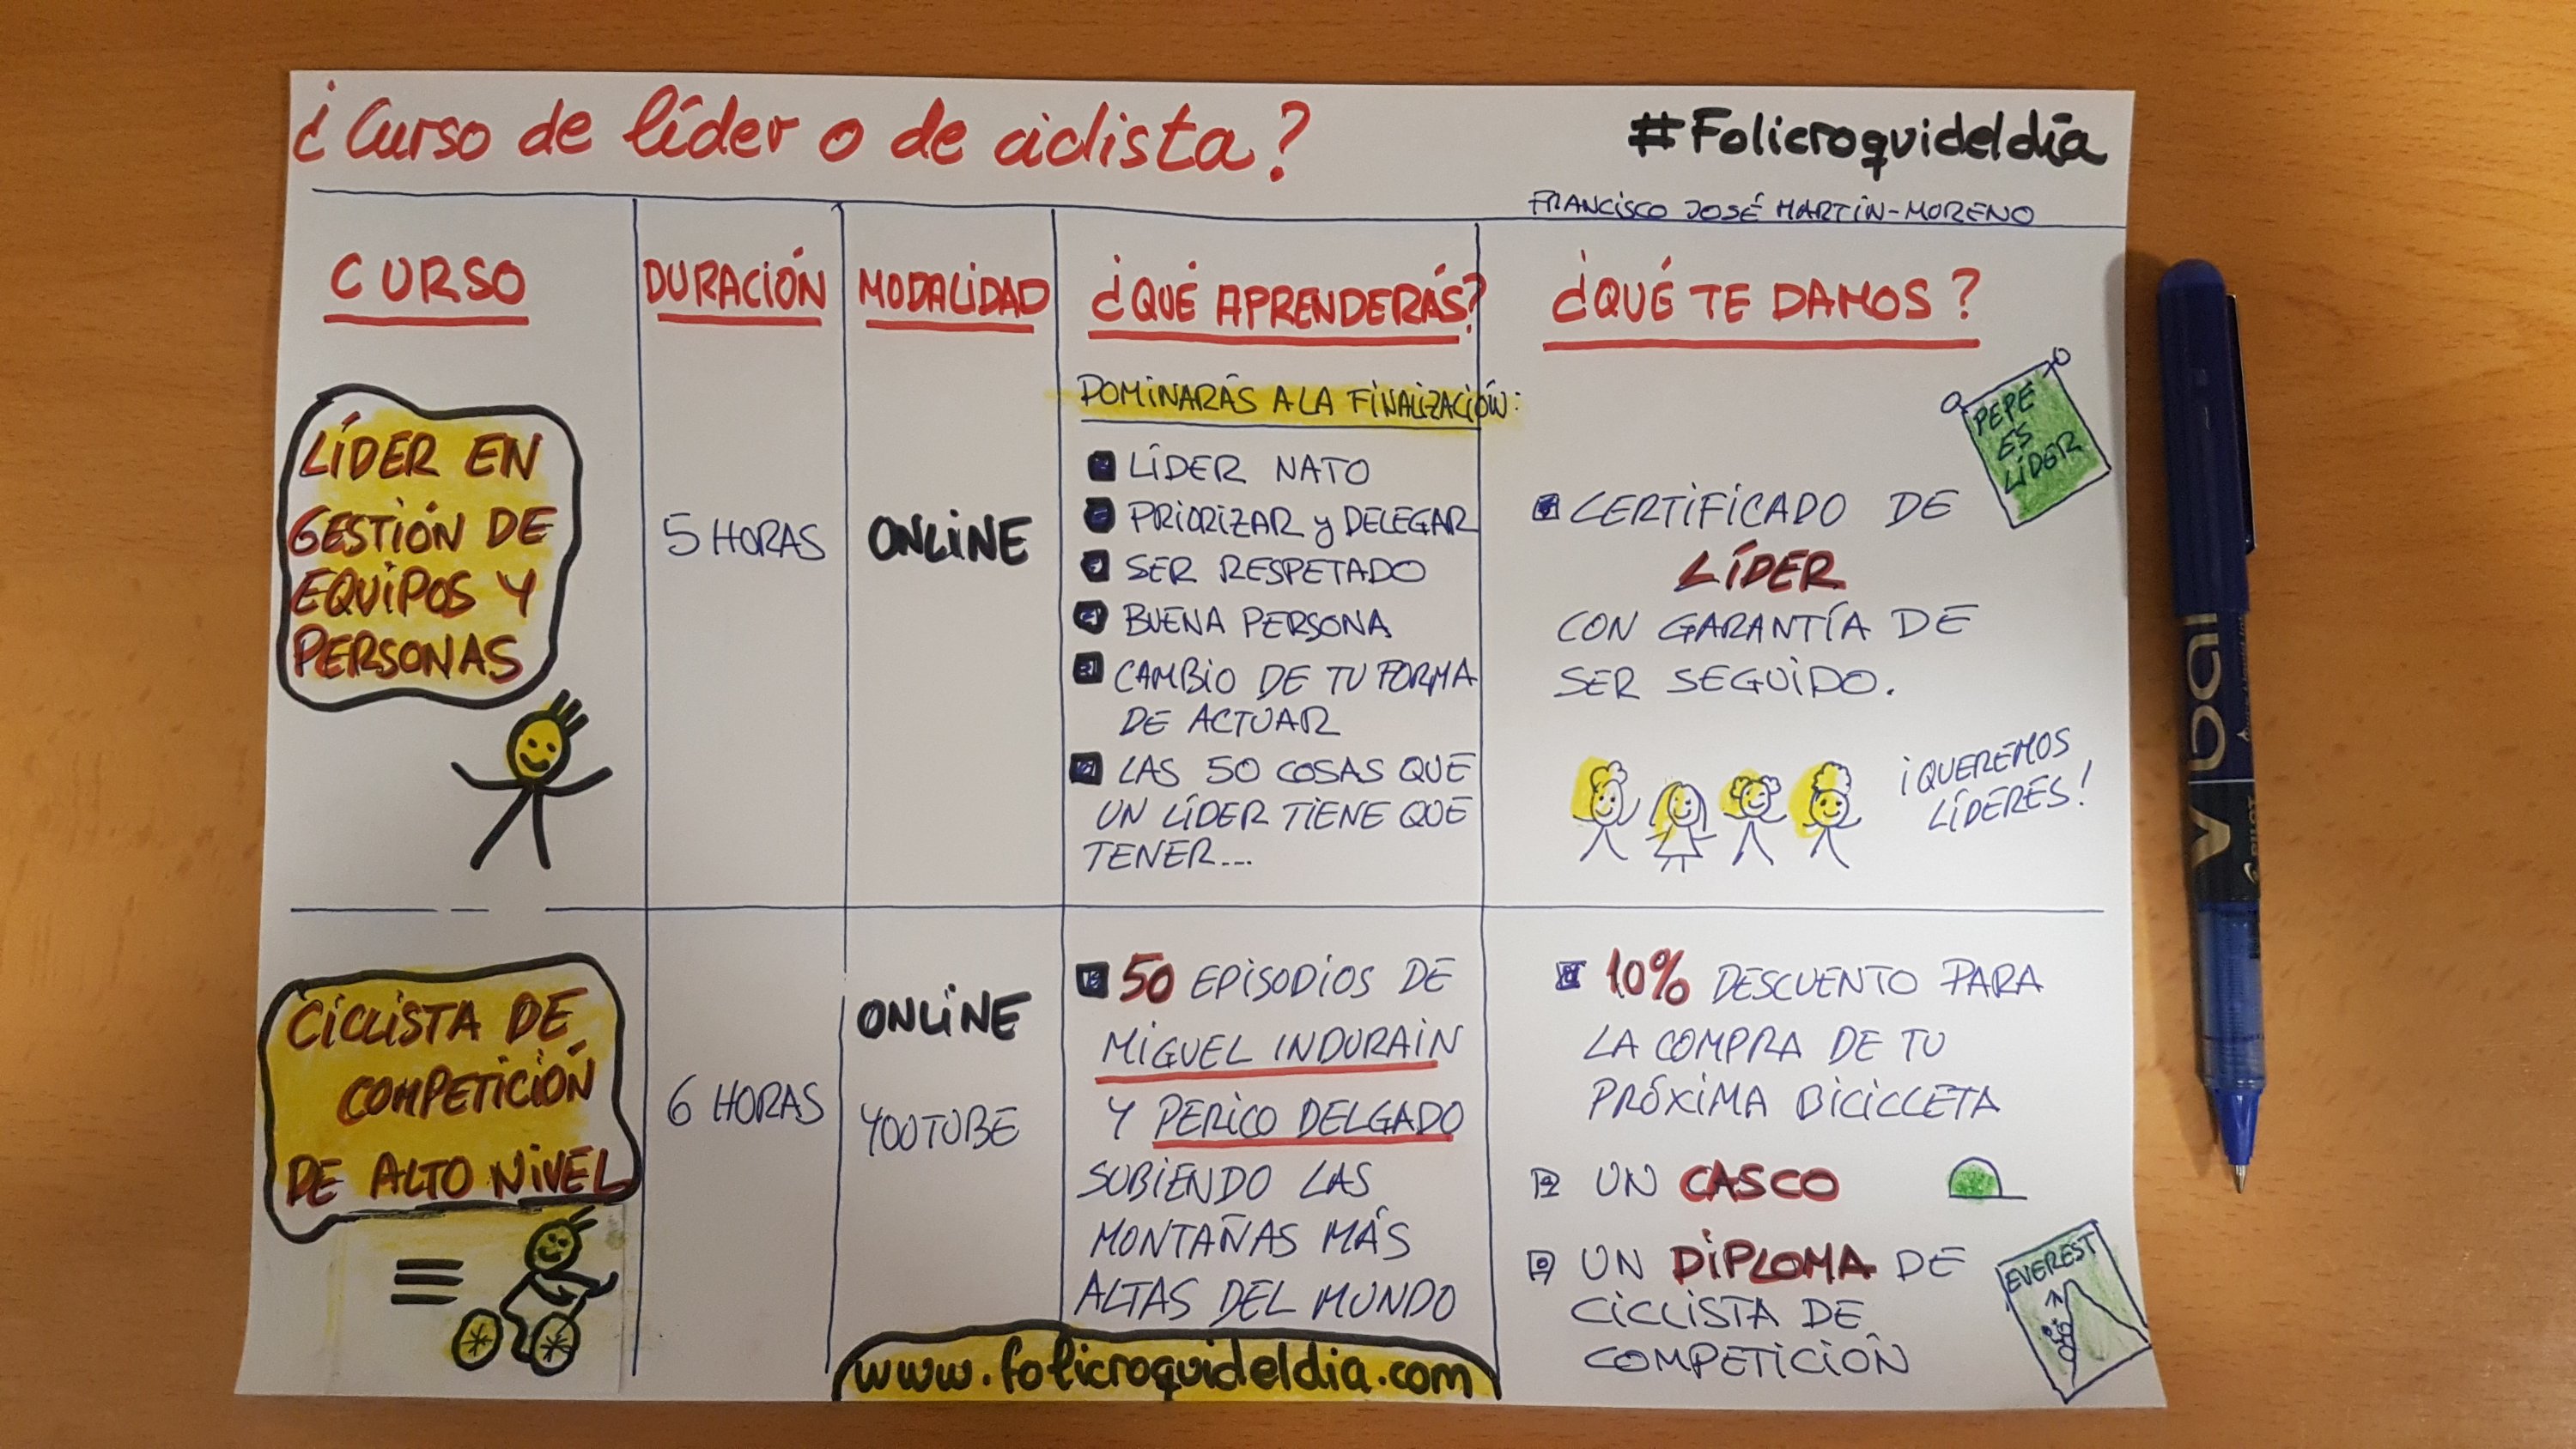 ¿Curso de líder o de ciclista?
#Folicroquideldía
FRANCISCO JOSÉ MARTÍN-MORENO
CURSO
DURACIÓN
MODALIDAD
¿QUÉ APRENDERÁS?
¿QUÉ TE DAMOS?
LÍDER EN
GESTIÓN DE
EQUIPOS Y
PERSONAS
5 HORAS
ONLINE
DOMINARÁS A LA FINALIZACIÓN:
LÍDER NATO
PRIORIZAR y DELEGAR
SER RESPETADO
BUENA PERSONA
CAMBIO DE TU FORMA
DE ACTUAR
LAS 50 COSAS QUE
UN LÍDER TIENE QUE
TENER...
PEPE
ES
LÍDER
CERTIFICADO DE
LÍDER
CON GARANTÍA DE
SER SEGUIDO.
¡QUEREMOS
LÍDERES!
CICLISTA DE
COMPETICIÓN
DE ALTO NIVEL
6 HORAS
ONLINE
YOUTUBE
50 EPISODIOS DE
MIGUEL INDURAIN
Y PERICO DELGADO
SUBIENDO LAS
MONTAÑAS MÁS
ALTAS DEL MUNDO
10% DESCUENTO PARA
LA COMPRA DE TU
PRÓXIMA BICICLETA
UN CASCO
UN DIPLOMA DE
CICLISTA DE
COMPETICIÓN
EVEREST
www.folicroquideldia.com
Vball
PILOT